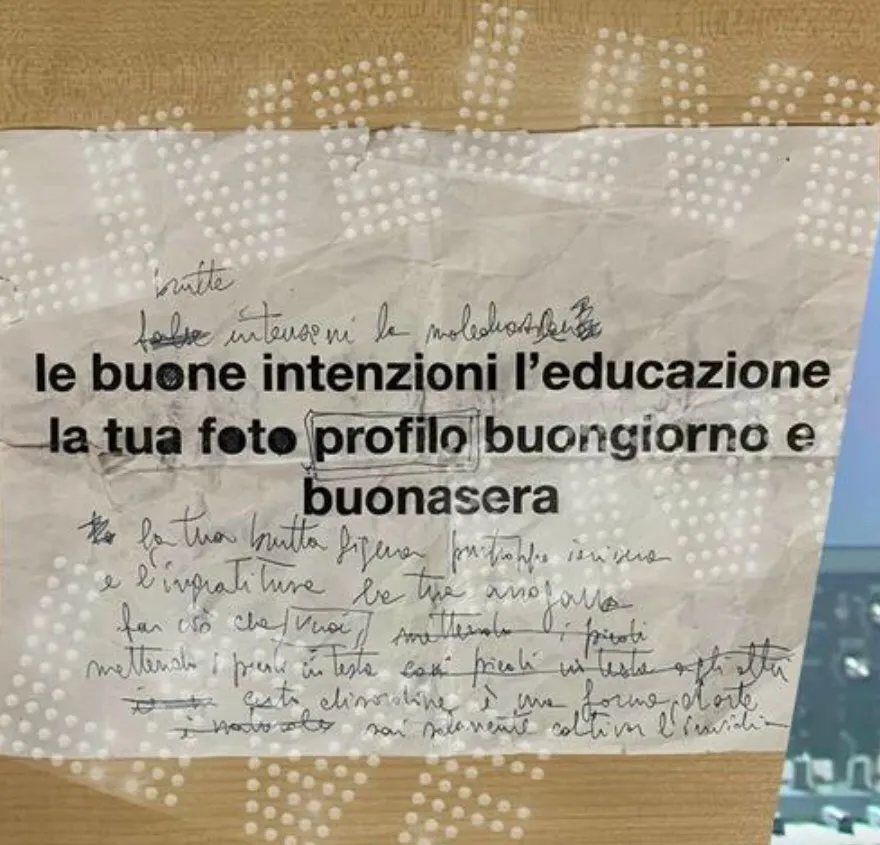 brutte
intenzioni la maleducazione
le buone intenzioni l'educazione
la tua foto profilo buongiorno e
buonasera
la tua brutta figura purtroppo
e l'ingratitudine la tua arroganza
fai ciò che vuoi, mettendo i piedi
mettendo i piedi in testa coi piedi in testa agli altri
disordine è una forma
sai solamente coltivar l'invidia